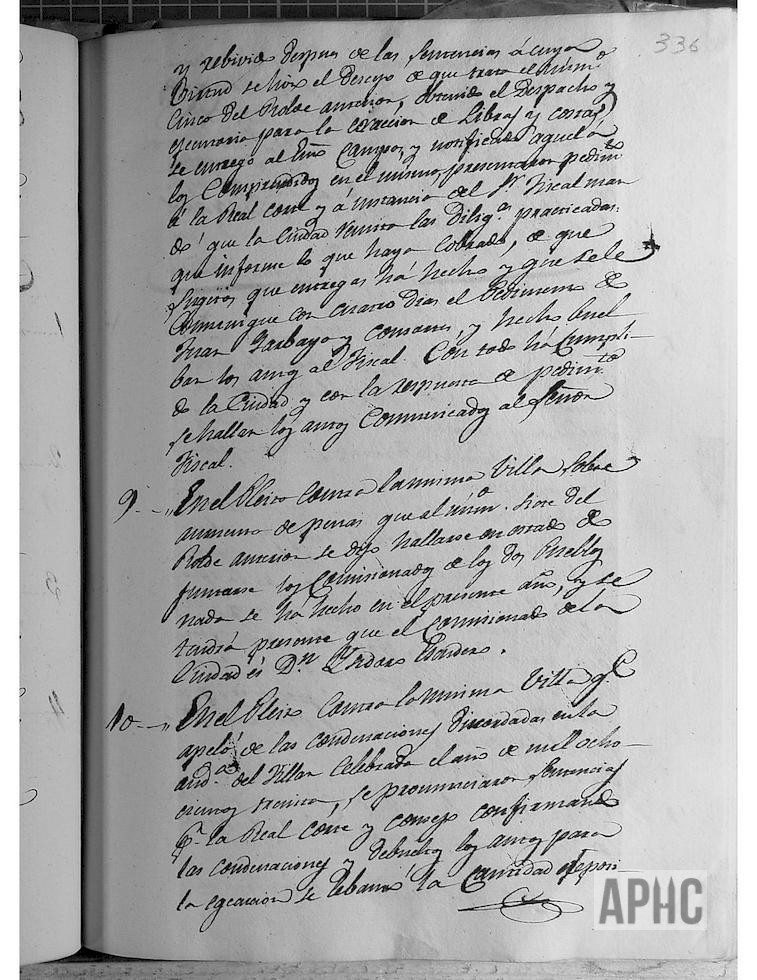 336
y rebivido despues de las sentencias á cuya
virtud se hizo el descejo de que trata el núm.o
Cinco del Rolde anterior, obtenido el Despacho y
egecutoria para la exaccion de Libras y costas,
se entregó al Ess.no Campos, y notificado aquel a
los Comprendidos en el mismo, presentaron pedim.to
á la Real Corte y á instancia del S.r Fiscal man
dó que la Ciudad remita las Dilig.as practicadas:
que informe lo que haya cobrado, de que
sugetos que entregas ha hecho y que se le
Comunique con cuatro dias el Pedimento de
Juan Garbayo y consortes, y hecho buel
ban los autos al Fiscal. Con todo ha cumpli-
do la Ciudad y con la respuesta de pedim.to
se hallan los autos Comunicados al Señor
Fiscal.
9 - En el Pleito contra la misma Villa sobre
aumento de penas que al núm.o siete del
Rolde anterior se dijo hallarse en estado de
juntarse los Comisionados de los dos Pueblos
nada se ha hecho en el presente año, y se
tendrá presente que el Comisionado de la
Ciudad es D.n Ysidoro
10 - En el Pleito contra la misma Villa q.e
apeló de las condenaciones discordadas en la
aud.a del Villar Celebrada el año de mil ocho-
cientos treinta, se pronunciaron sentencias
p.r la Real Corte y Consejo confirmando
las condenaciones y debueltos los autos para
la egecucion se lebantó la Cantidad deposi-
APHC